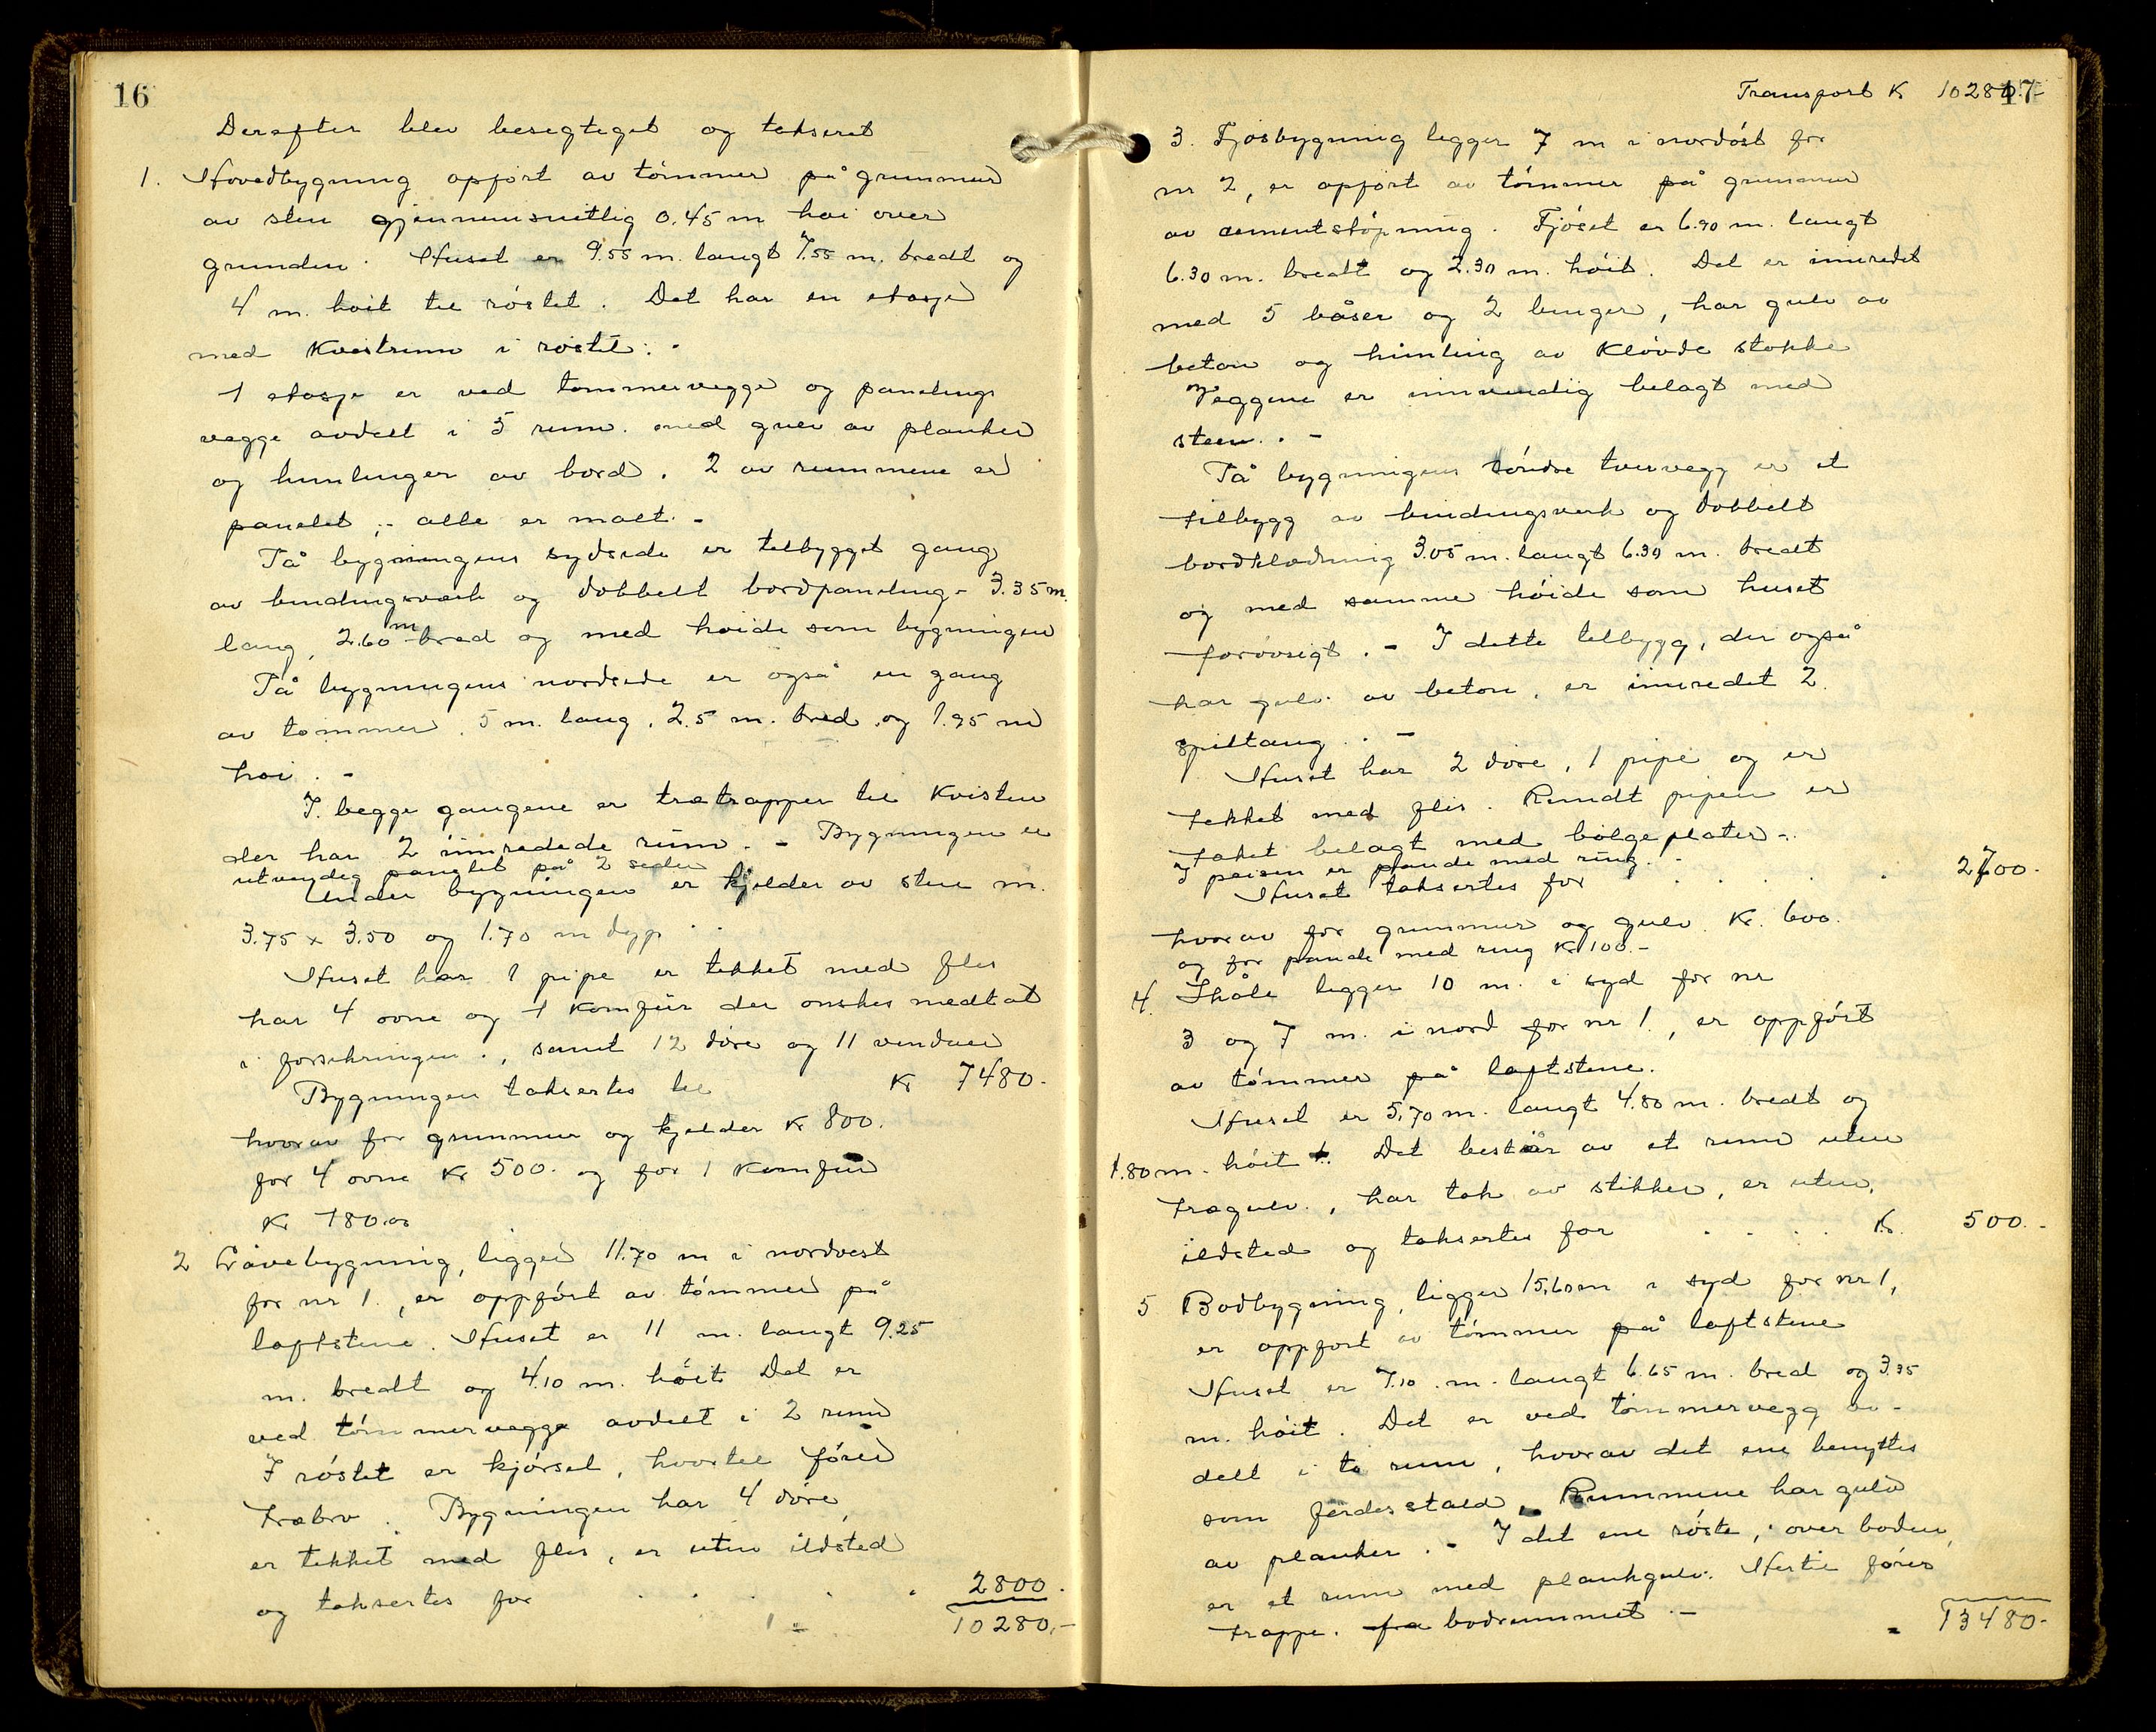 16
Derefter blev besegteget og takseret
1. Hovedbygning opført av tömmer på grunmur
av sten gjennemsnitlig 0.45 m høi over
grunden. Huset er 9.55 m. langt 7.55 m. bredt og
4 m. høit til röstet. Det har en etasje
med Kvistrum i röstet. -
1 etasje er ved tømmervegge og panelings
vægge avdelt i 5 rum. med gulv av planker
og himlinger av bord. 2 av rummene er
panelet ;- alle er malt. -
På bygningens sydside er tilbygget gang
av bindingsværk og dobbelt bordpaneling - 3.35 m.
lang, 2.60 m bred og med høide som bygningen
På bygningens nordside er også en gang
av tømmer, 5 m. lang, 2.5 m. bred og 1.95 m
høi. -
I begge gangene er trætrapper til Kvisten
der har 2 innredede rum. - Bygningen er
utvendig panelet på 2 sider
Under bygningen er kjelder av sten m.
3.75 x 3.50 og 1.70 m dyp.
Huset har 1 pipe er tekket med flis
har 4 ovne og 1 Komfür der ønskes medtat
i forsikringen., samt 12 døre og 11 vinduer
Bygningen taksertes til Kr 7480.-
hvorav for grunmur og kjelder Kr 800.
for 4 ovne Kr 500. og for 1 Komfur
Kr 180.00
2 Låvebygning, ligger 11.70 m i nordvest
for nr 1., er oppført av tömmer på
løftstene. Huset er 11 m. langt 9.25
m. bredt og 4.10 m. høit. Det er
ved tömmervegge avdelt i 2 rum
I röstet er kjörsel, hvortil förer
træbro. Bygningen har 4 döre,
er tekket med flis, er uten ildsted
og taksertes for . . . . . 2800.
10280,-
Transport Kr 10280.-
17
3. Fjösbygning ligger 7 m i nordöst for
nr 2, er opført av tömmer på grunmur
av cementstöpning. Fjöset er 6.90 m. langt
6.30 m. bredt og 2.30 m. höit. Det er innredet
med 5 båser og 2 binger, har gulv av
beton og himling av klövde stokke
Veggene er innvendig belagt med
steen. -
På bygningens söndre tvervegg er et
tilbygg av bindingsverk og dobbelt
bordklædning 3.05 m. langt 6.30 m. bredt
og med samme höide som huset
forövrigt. - I dette tilbygg, der også
har gulv av beton, er innredet 2
spiltaug. -
Huset har 2 döre, 1 pipe og er
tekket med flis. Rundt pipen er
taket belagt med bölgeplater -.
I peisen er pande med ring. -
Huset taksertes for . . . . 2700.-
hvorav for grunmur og gulv Kr. 600.
og for pande med ring Kr 100.-
4. Skåle ligger 10 m. i syd for nr
3 og 7 m. i nord for nr 1., er oppfört
av tömmer på løftstene.
Huset er 5,70 m. langt 4.80 m. bredt og
1.80 m. höit. Det består av et rum uten
trægulv., har tak av stikker, er uten
ildsted og taksertes for . . . . Kr. 500.-
5 Bodbygning, ligger 15,60 m i syd for nr 1,
er oppført av tömmer på løftstene
Huset er 7.10 m. langt 6.65 m. bred og 3.35
m. höit. Det er ved tömmervegg av-
delt i to rum, hvorav det ene benyttes
som ferdesstald. Rummene har gulv
av planker. - I det ene röste, over boden,
er et rum med plankgulv. Hertil förer
trappe. fra bodrummet. -
13480.-